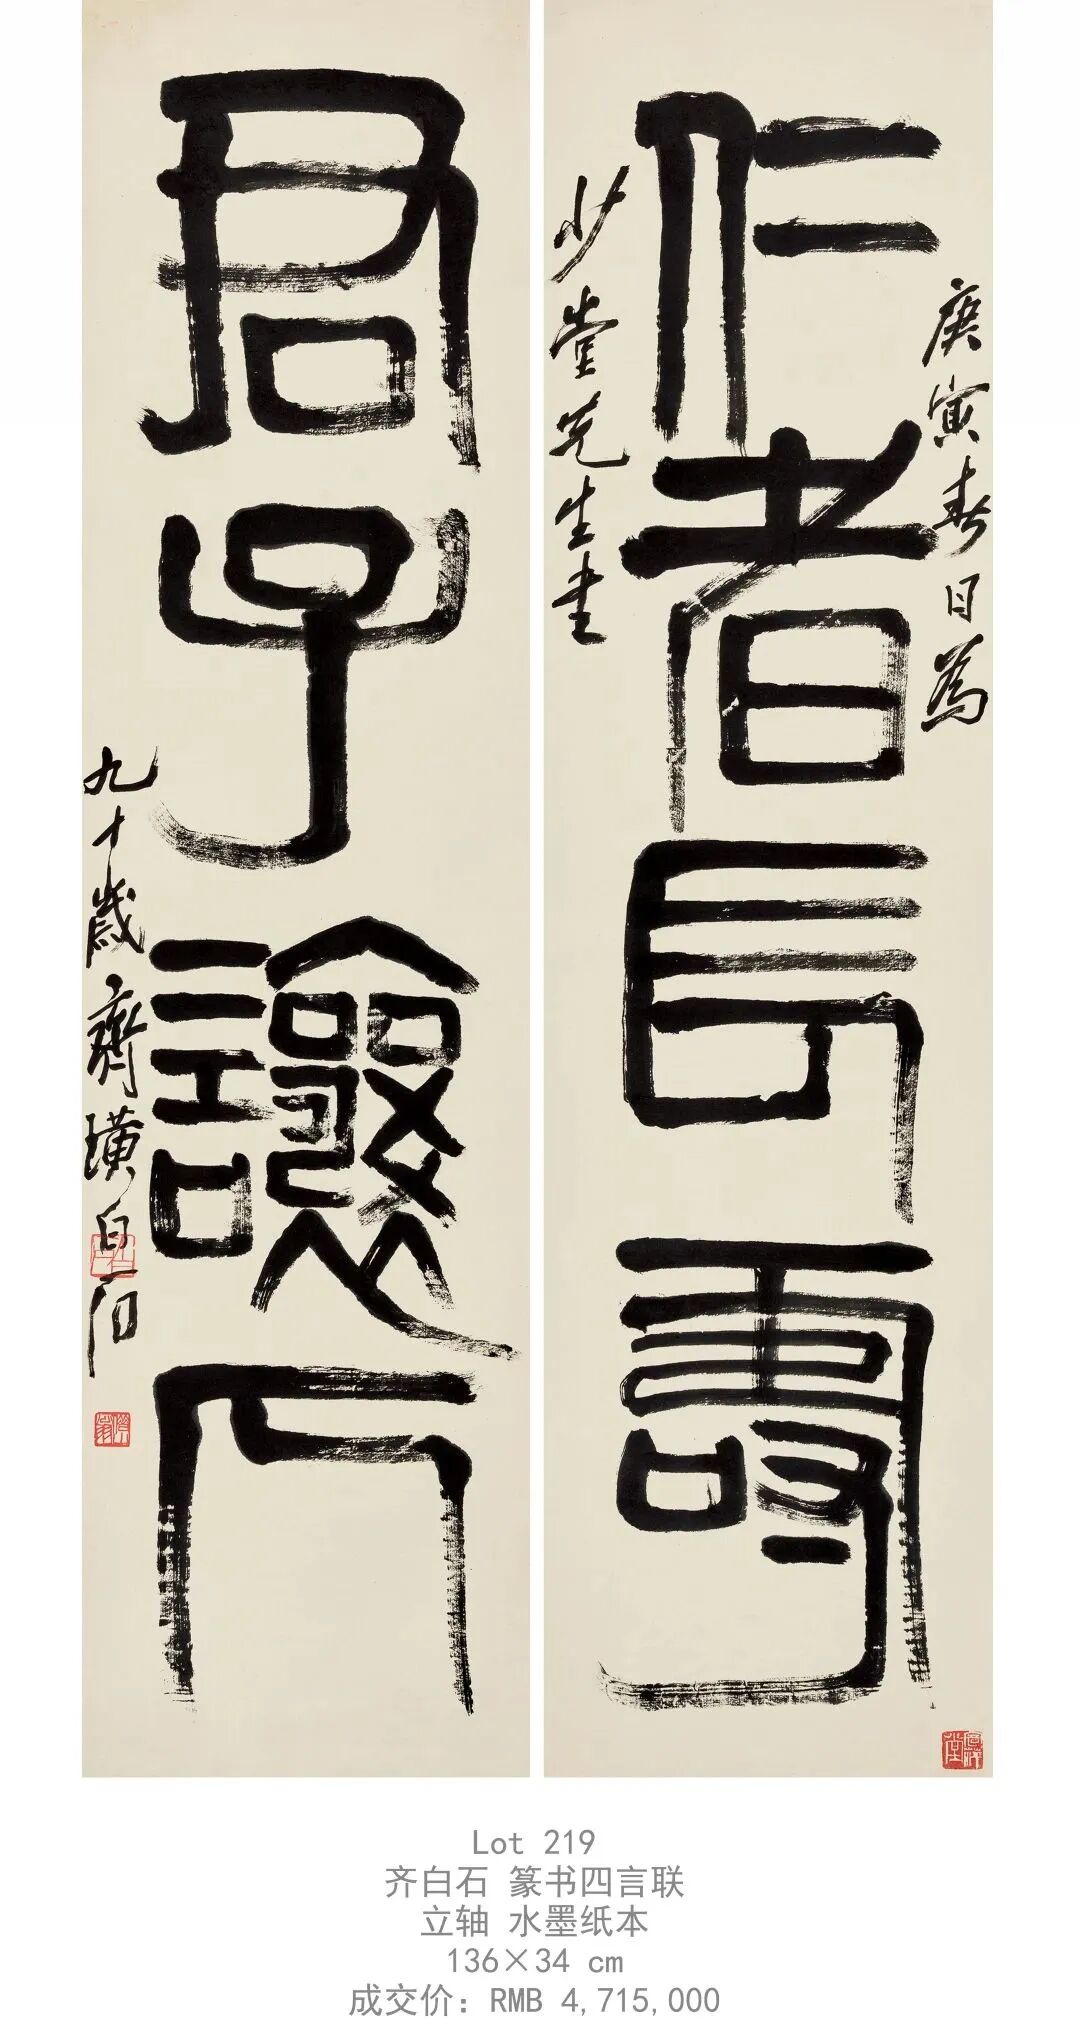 庚寅春日為
仁者長壽
少堂先生書
君子讓人
九十歲齊璜白石
Lot 219
齐白石 篆书四言联
立轴 水墨纸本
136×34 cm
成交价：RMB 4,715,000